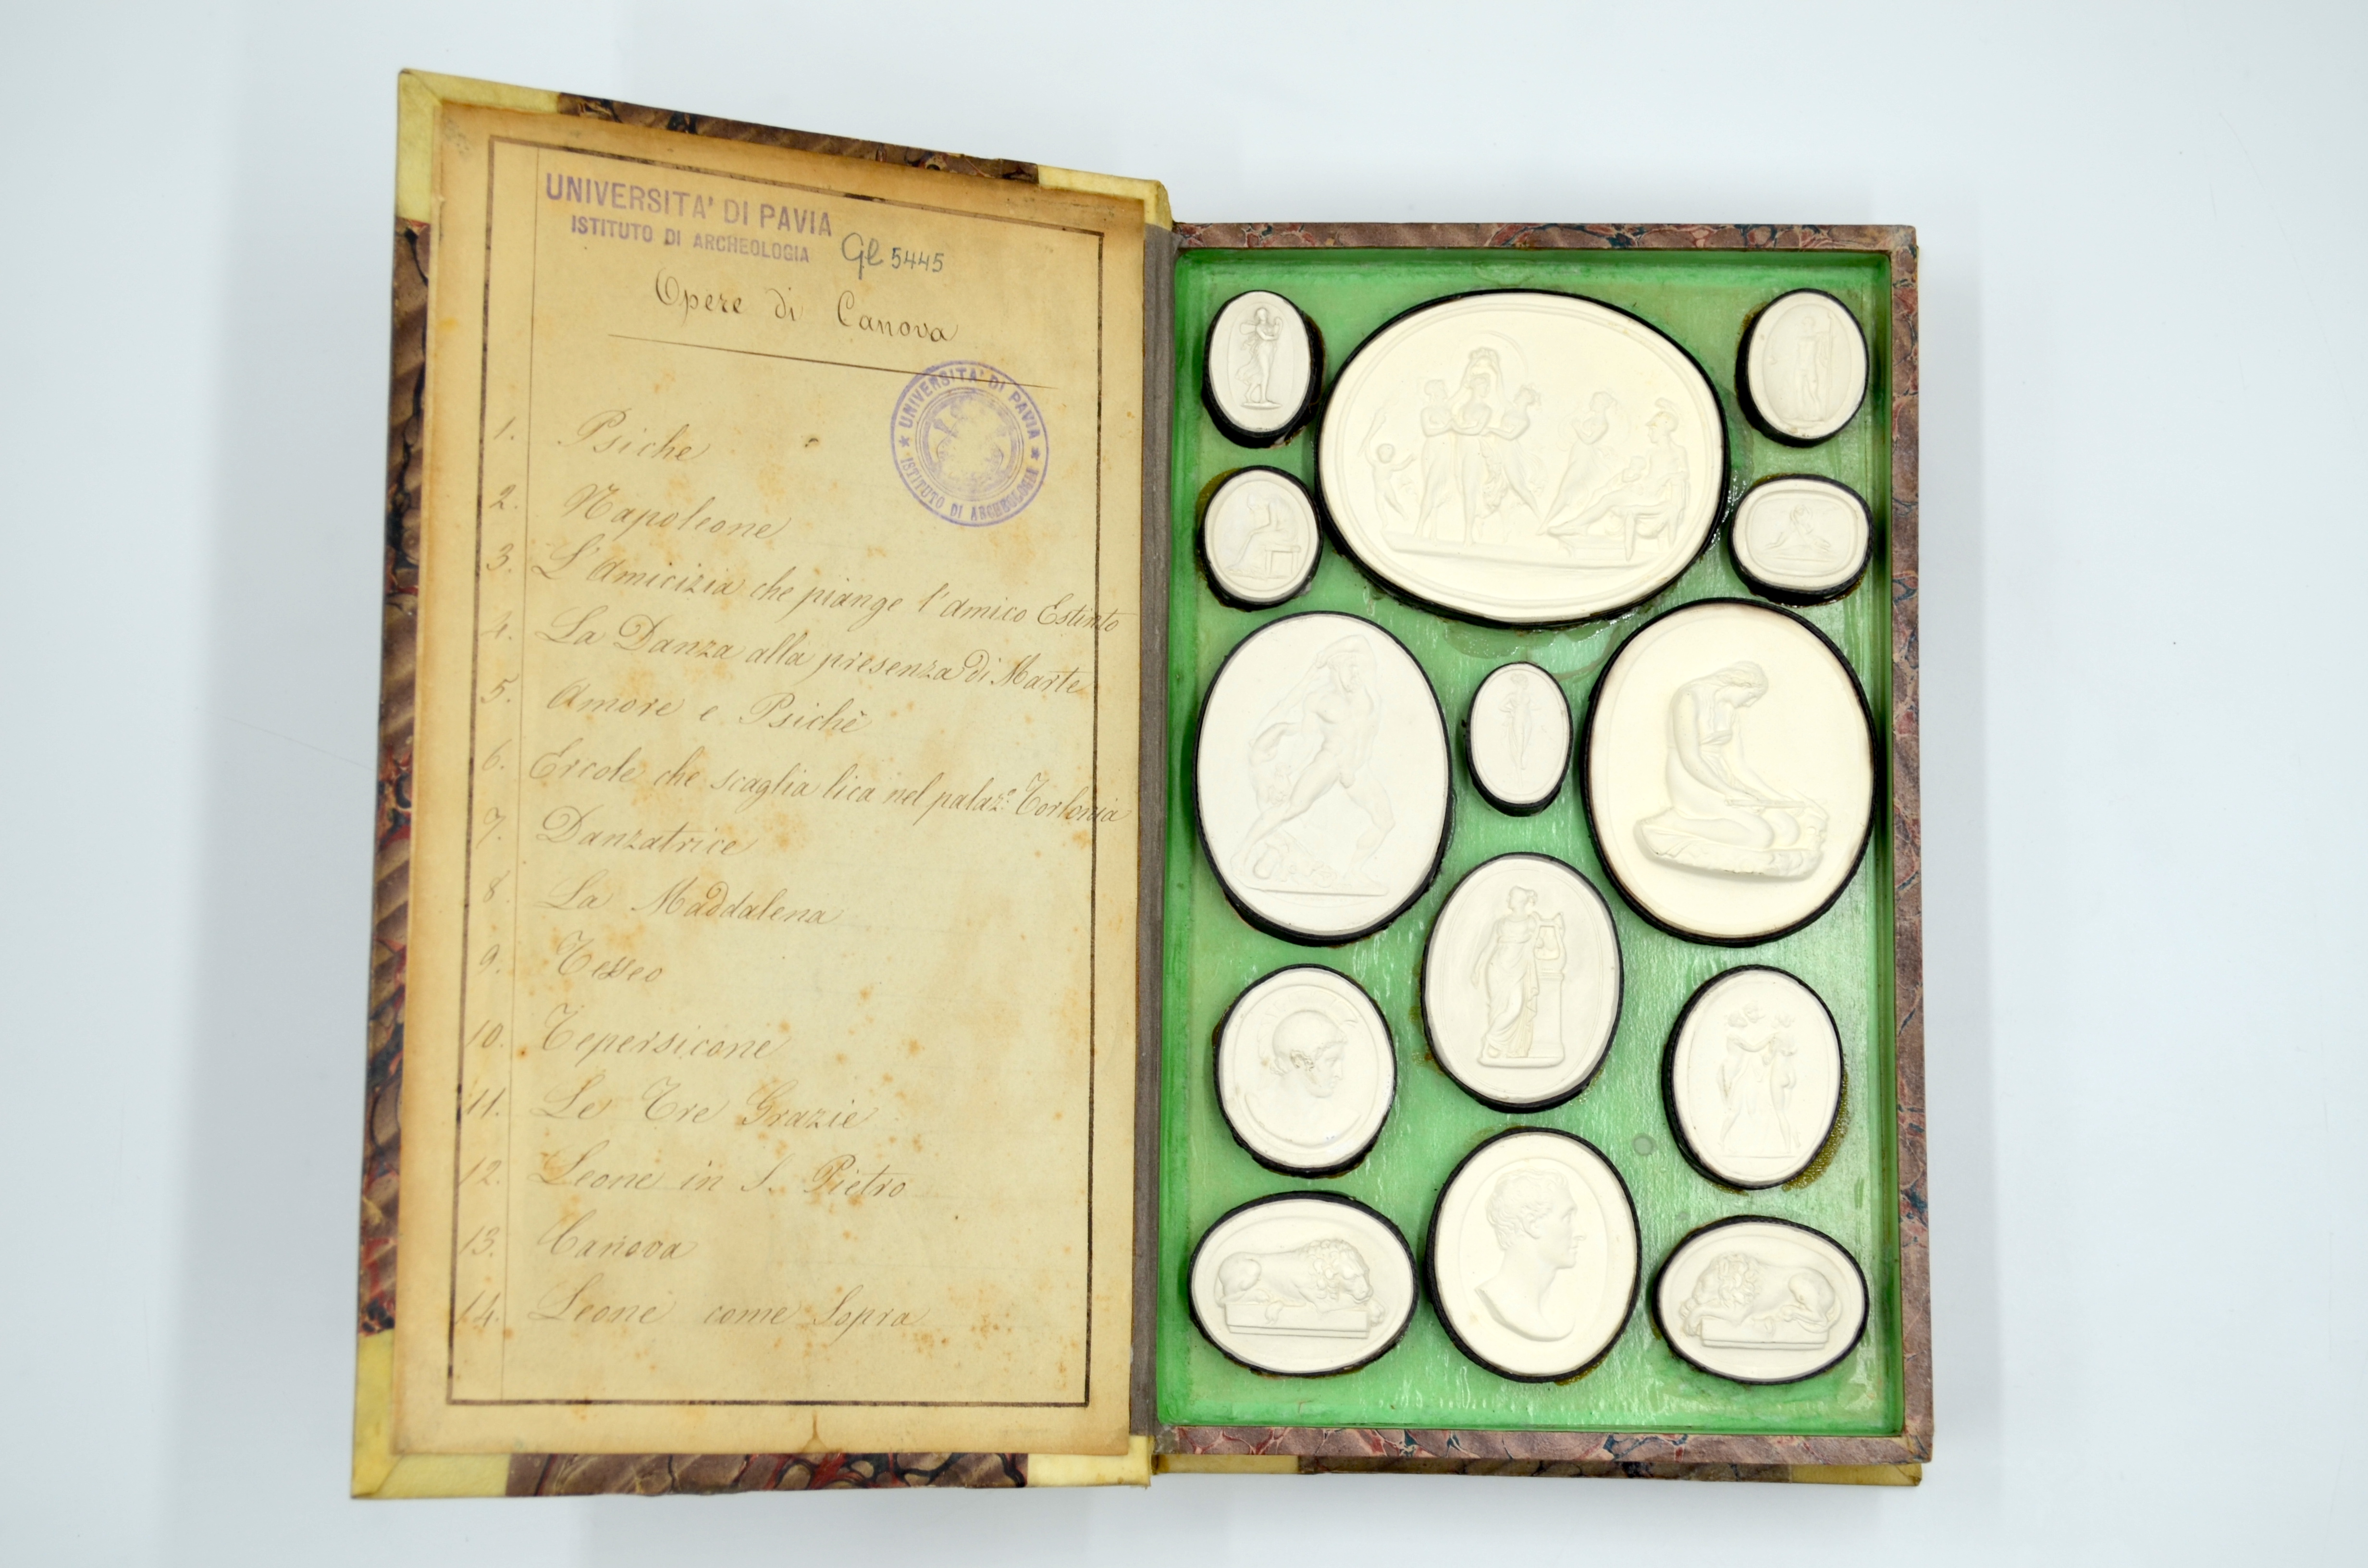 UNIVERSITA' DI PAVIA
ISTITUTO DI ARCHEOLOGIA
Gl 5445
Opere di Canova
UNIVERSITA' DI PAVIA
ISTITUTO DI ARCHEOLOGIA
1. Psiche
2. Napoleone
3. L'Amicizia che piange l'amico Estinto
4. La Danza alla presenza di Marte
5. Amore e Psichè
6. Ercole che scaglia lica nel palaz.o Torlonia
7. Danzatrice
8. La Maddalena
9. Tesseo
10. Tepersicone
11. Le Tre Grazie
12. Leone in S. Pietro
13. Canova
14. Leone come Sopra